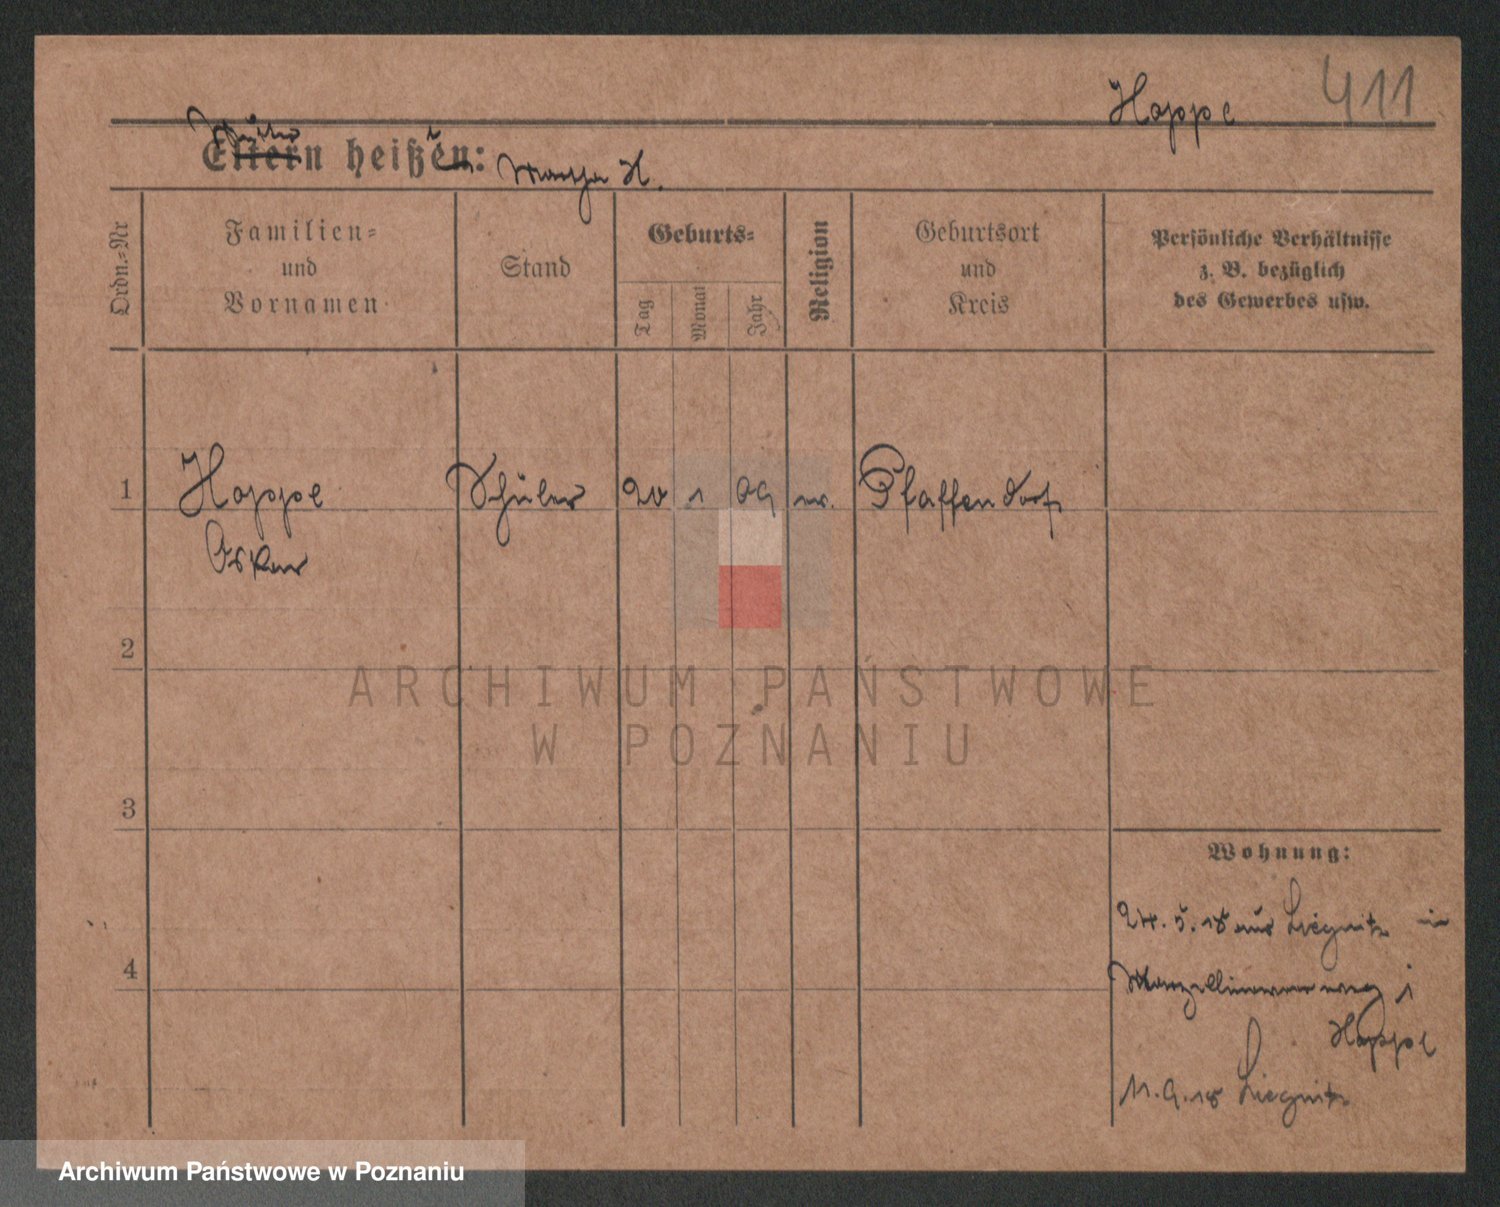 Hoppe 411
Mutter
Eltern heißen: Martha H.
Ordn.=Nr
Familien=
und
Vornamen
Stand
Geburts=
Tag
Monat
Jahr
Religion
Geburtsort
und
Kreis
Persönliche Verhältnisse
z. B. bezüglich
des Gewerbes usw.
1 Hoppe Schüler 20 1 09 ev. Pfaffendorf
Oskar
2
ARCHIWUM PAŃSTWOWE
W POZNANIU
3
Wohnung:
24. 5. 18 aus Liegnitz
4
Hoppe
11. 9. 18 Liegnitz
Archiwum Państwowe w Poznaniu